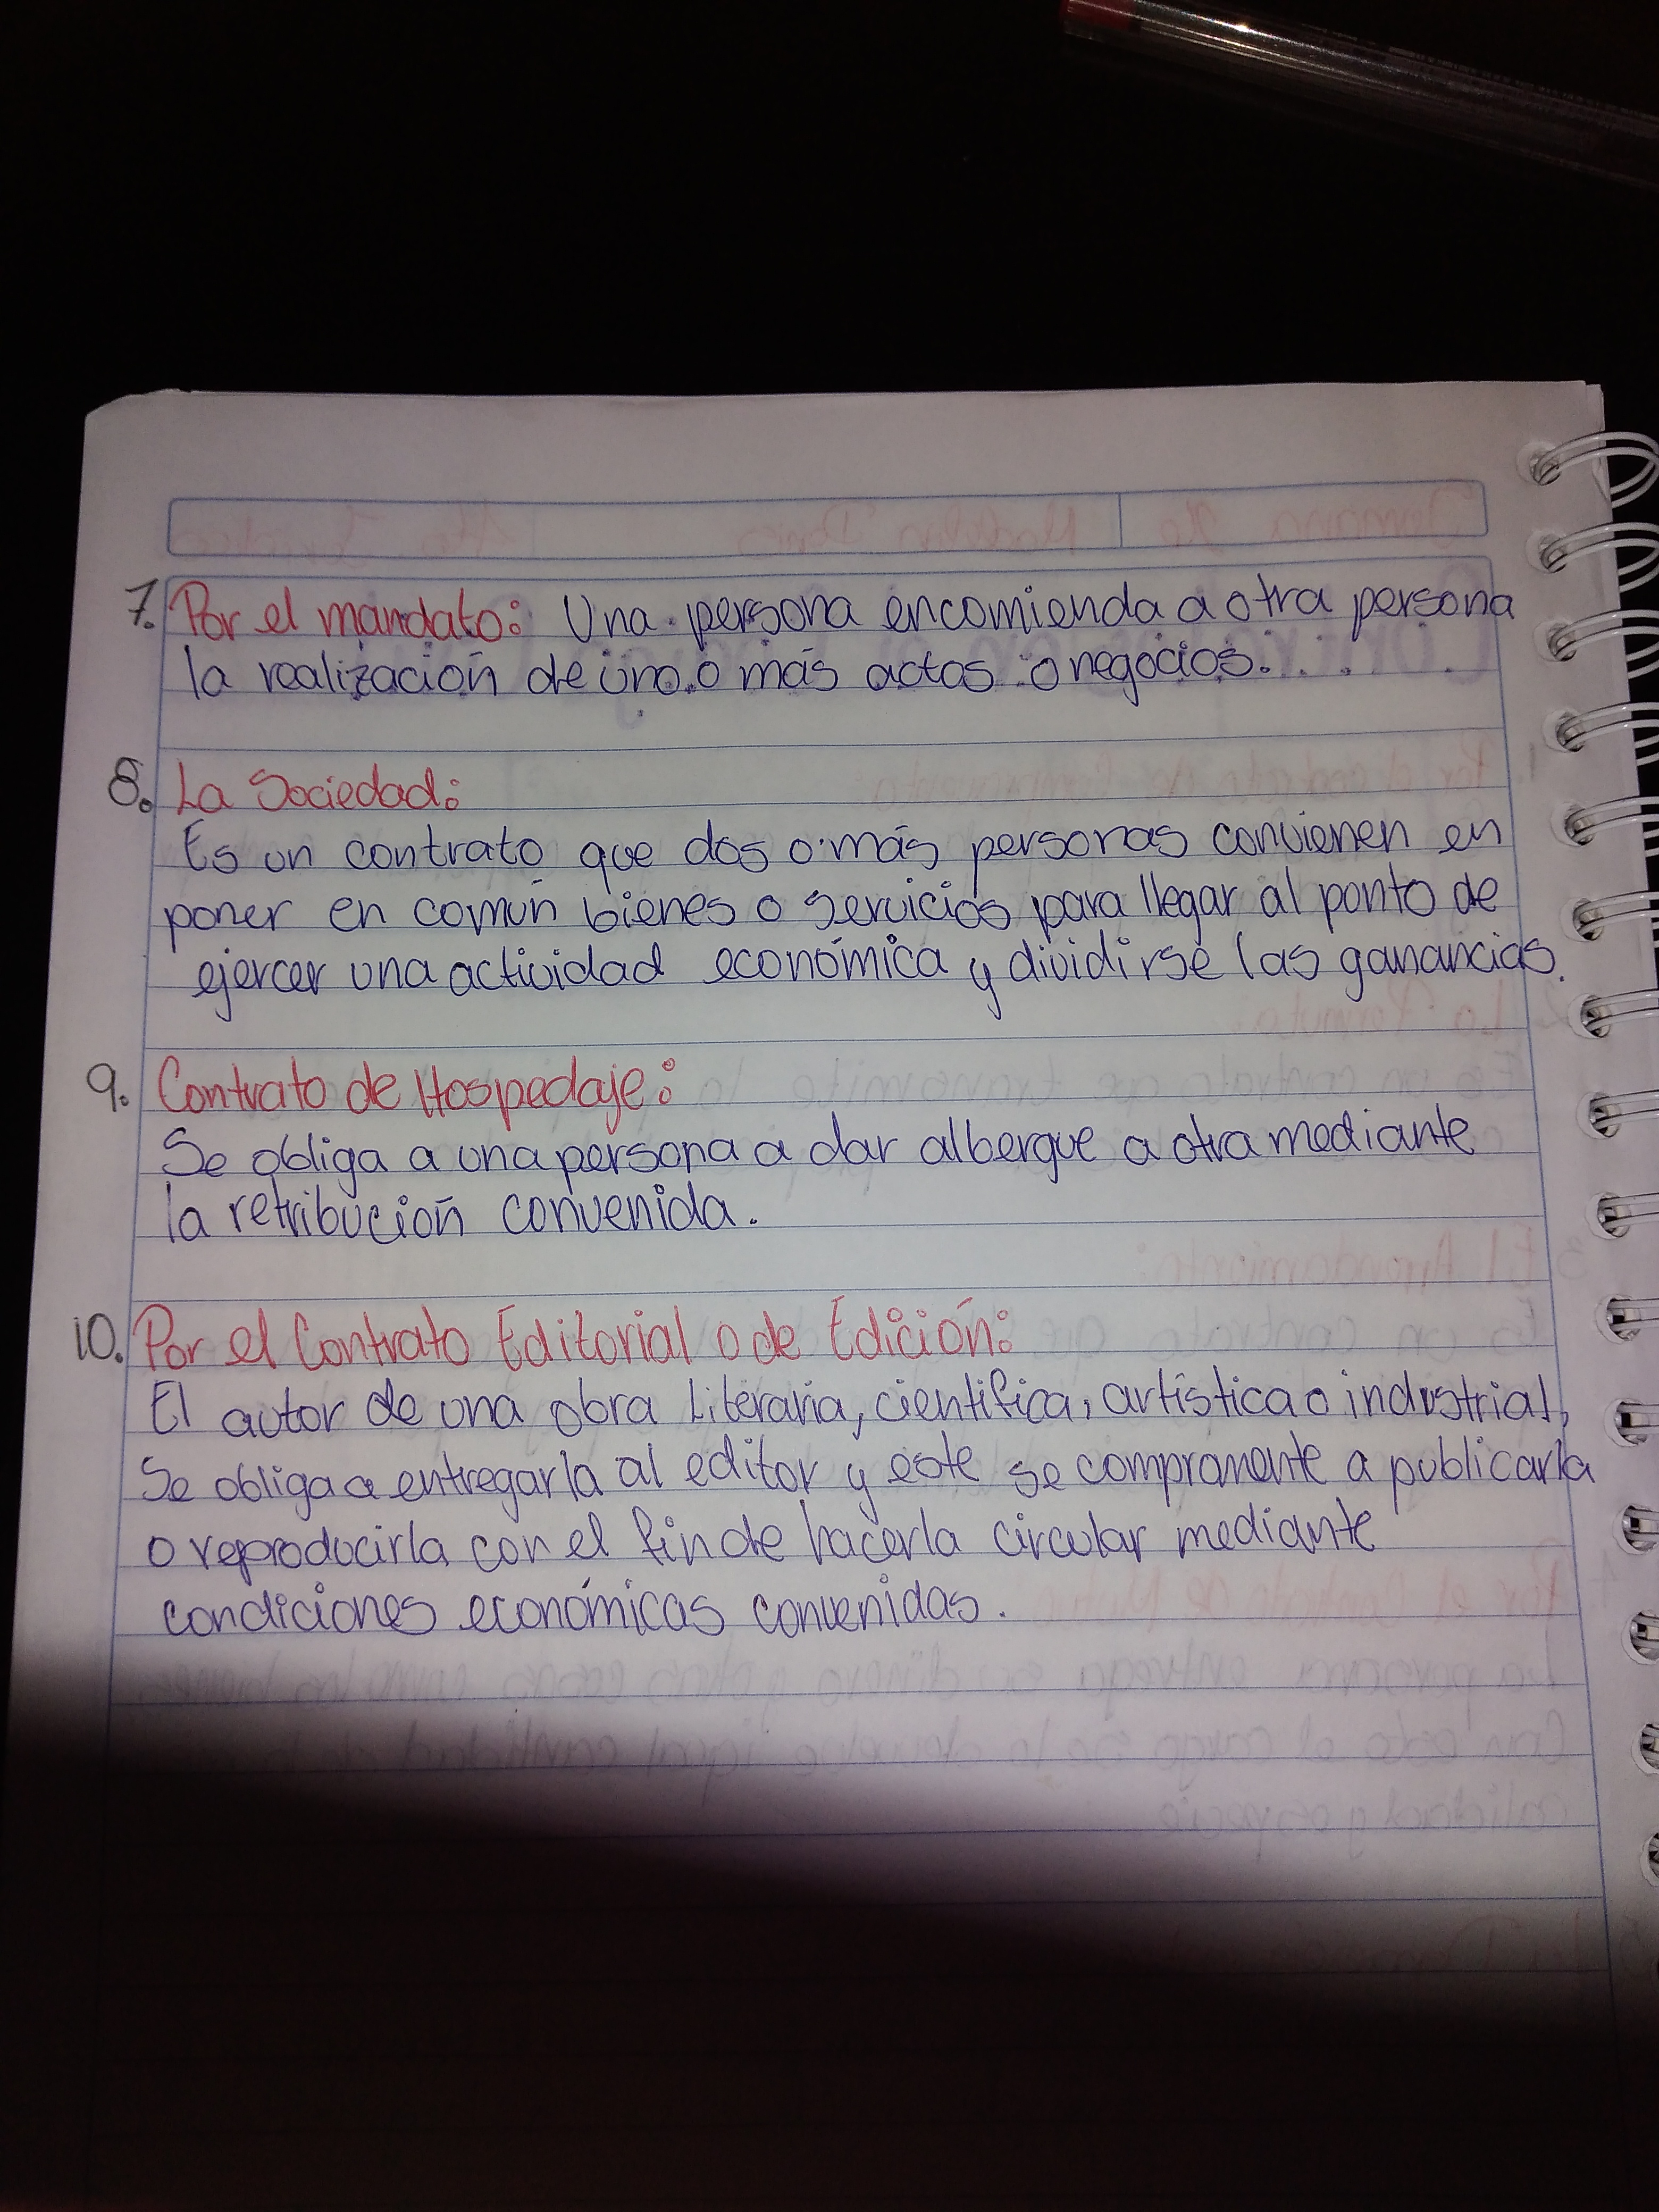 7. Por el mandato: Una persona encomienda a otra persona
la realización de uno o más actos o negocios.
8. La Sociedad:
Es un contrato que dos o más personas convienen en
poner en común bienes o servicios para llegar al punto de
ejercer una actividad económica y dividirse las ganancias.
9. Contrato de Hospedaje:
Se obliga a una persona a dar albergue a otra mediante
la retribución convenida.
10. Por el Contrato Editorial o de Edición:
El autor de una obra Literaria, científica, artística o industrial,
Se obliga a entregarla al editor y este se compromente a publicarla
o reproducirla con el fin de hacerla circular mediante
condiciones económicas convenidas.